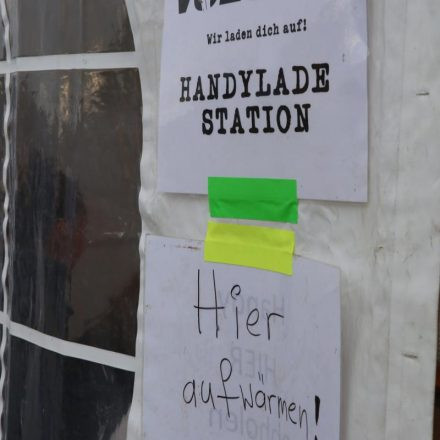 Wir laden dich auf!
HANDYLADE
STATION
Hier
aufwärmen!